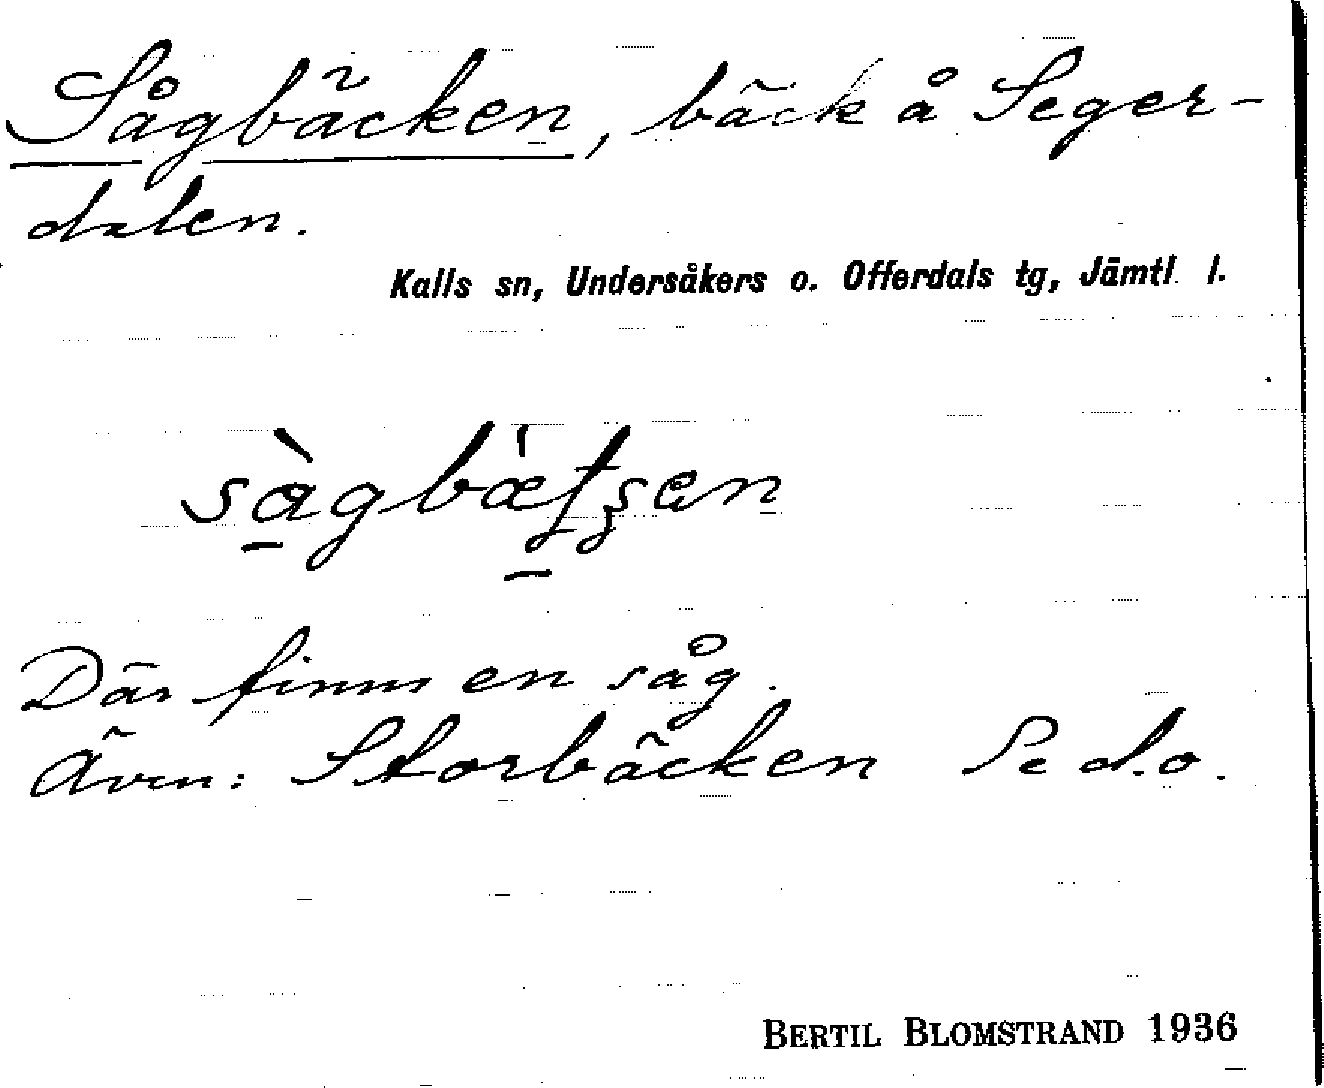 Sågbäcken, bäck å Seger-
dalen.
Kalls sn, Undersåkers o. Offerdals tg, Jämtl. l.
Där finns en såg.
Även: Storbäcken Se d.o.
BERTIL BLOMSTRAND 1936